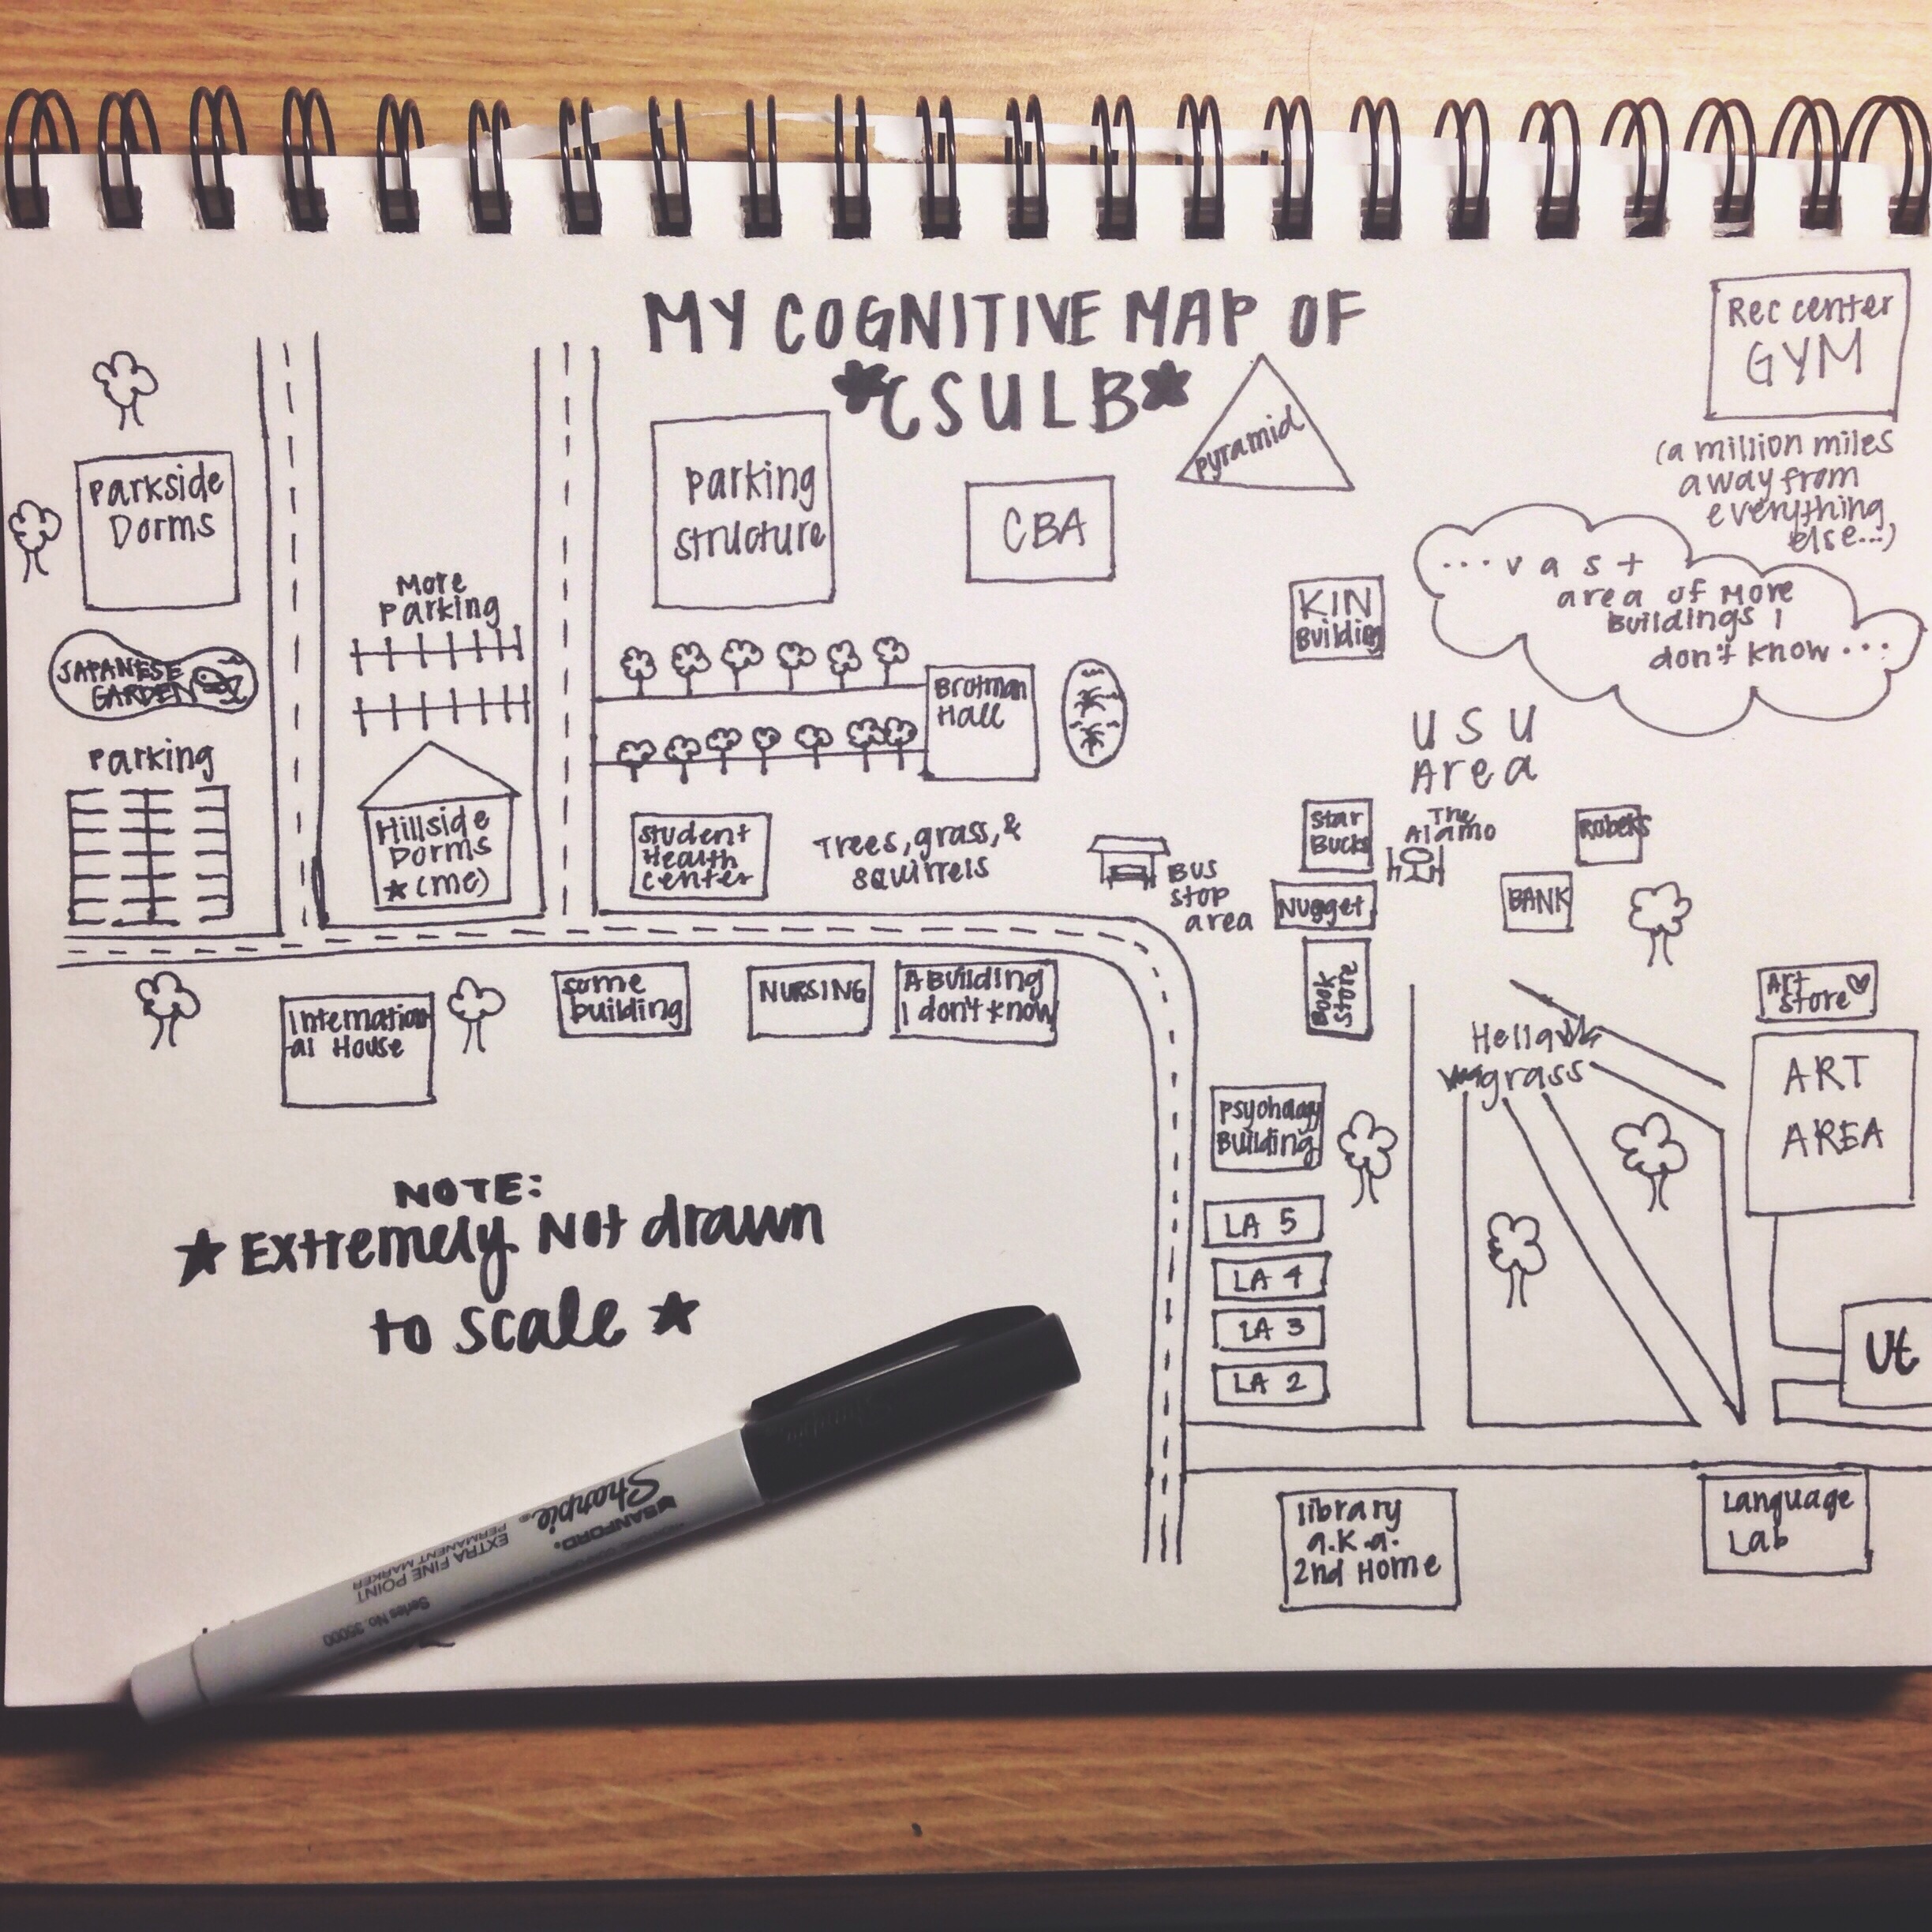 MY COGNITIVE MAP OF
CSULB
Rec center
GYM
(a million miles
away from
everything
else...)
Parkside
Dorms
More
Parking
Parking
Structure
CBA
pyramid
KIN
Building
...vast
area of more
Buildings I
don't know...
JAPANESE
GARDEN
Parking
Hillside
Dorms
★(me)
Brotman
Hall
Student
Health
Center
Trees, grass, &
squirrels
BUS
Stop
area
USU
Area
Star
Bucks
The
Alamo
Nugget
BANK
Book
Store
International
-al House
some
building
NURSING
A Building
I don't know
Hella
grass
Art
Store
ART
AREA
Psychology
Building
LA 5
LA 4
LA 3
LA 2
Ut
NOTE:
★ Extremely Not drawn
to scale ★
library
a.k.a.
2nd Home
Language
Lab
Sharpie®
SANFORD.
EXTRA FINE POINT
PERMANENT MARKER
Series No. 35000